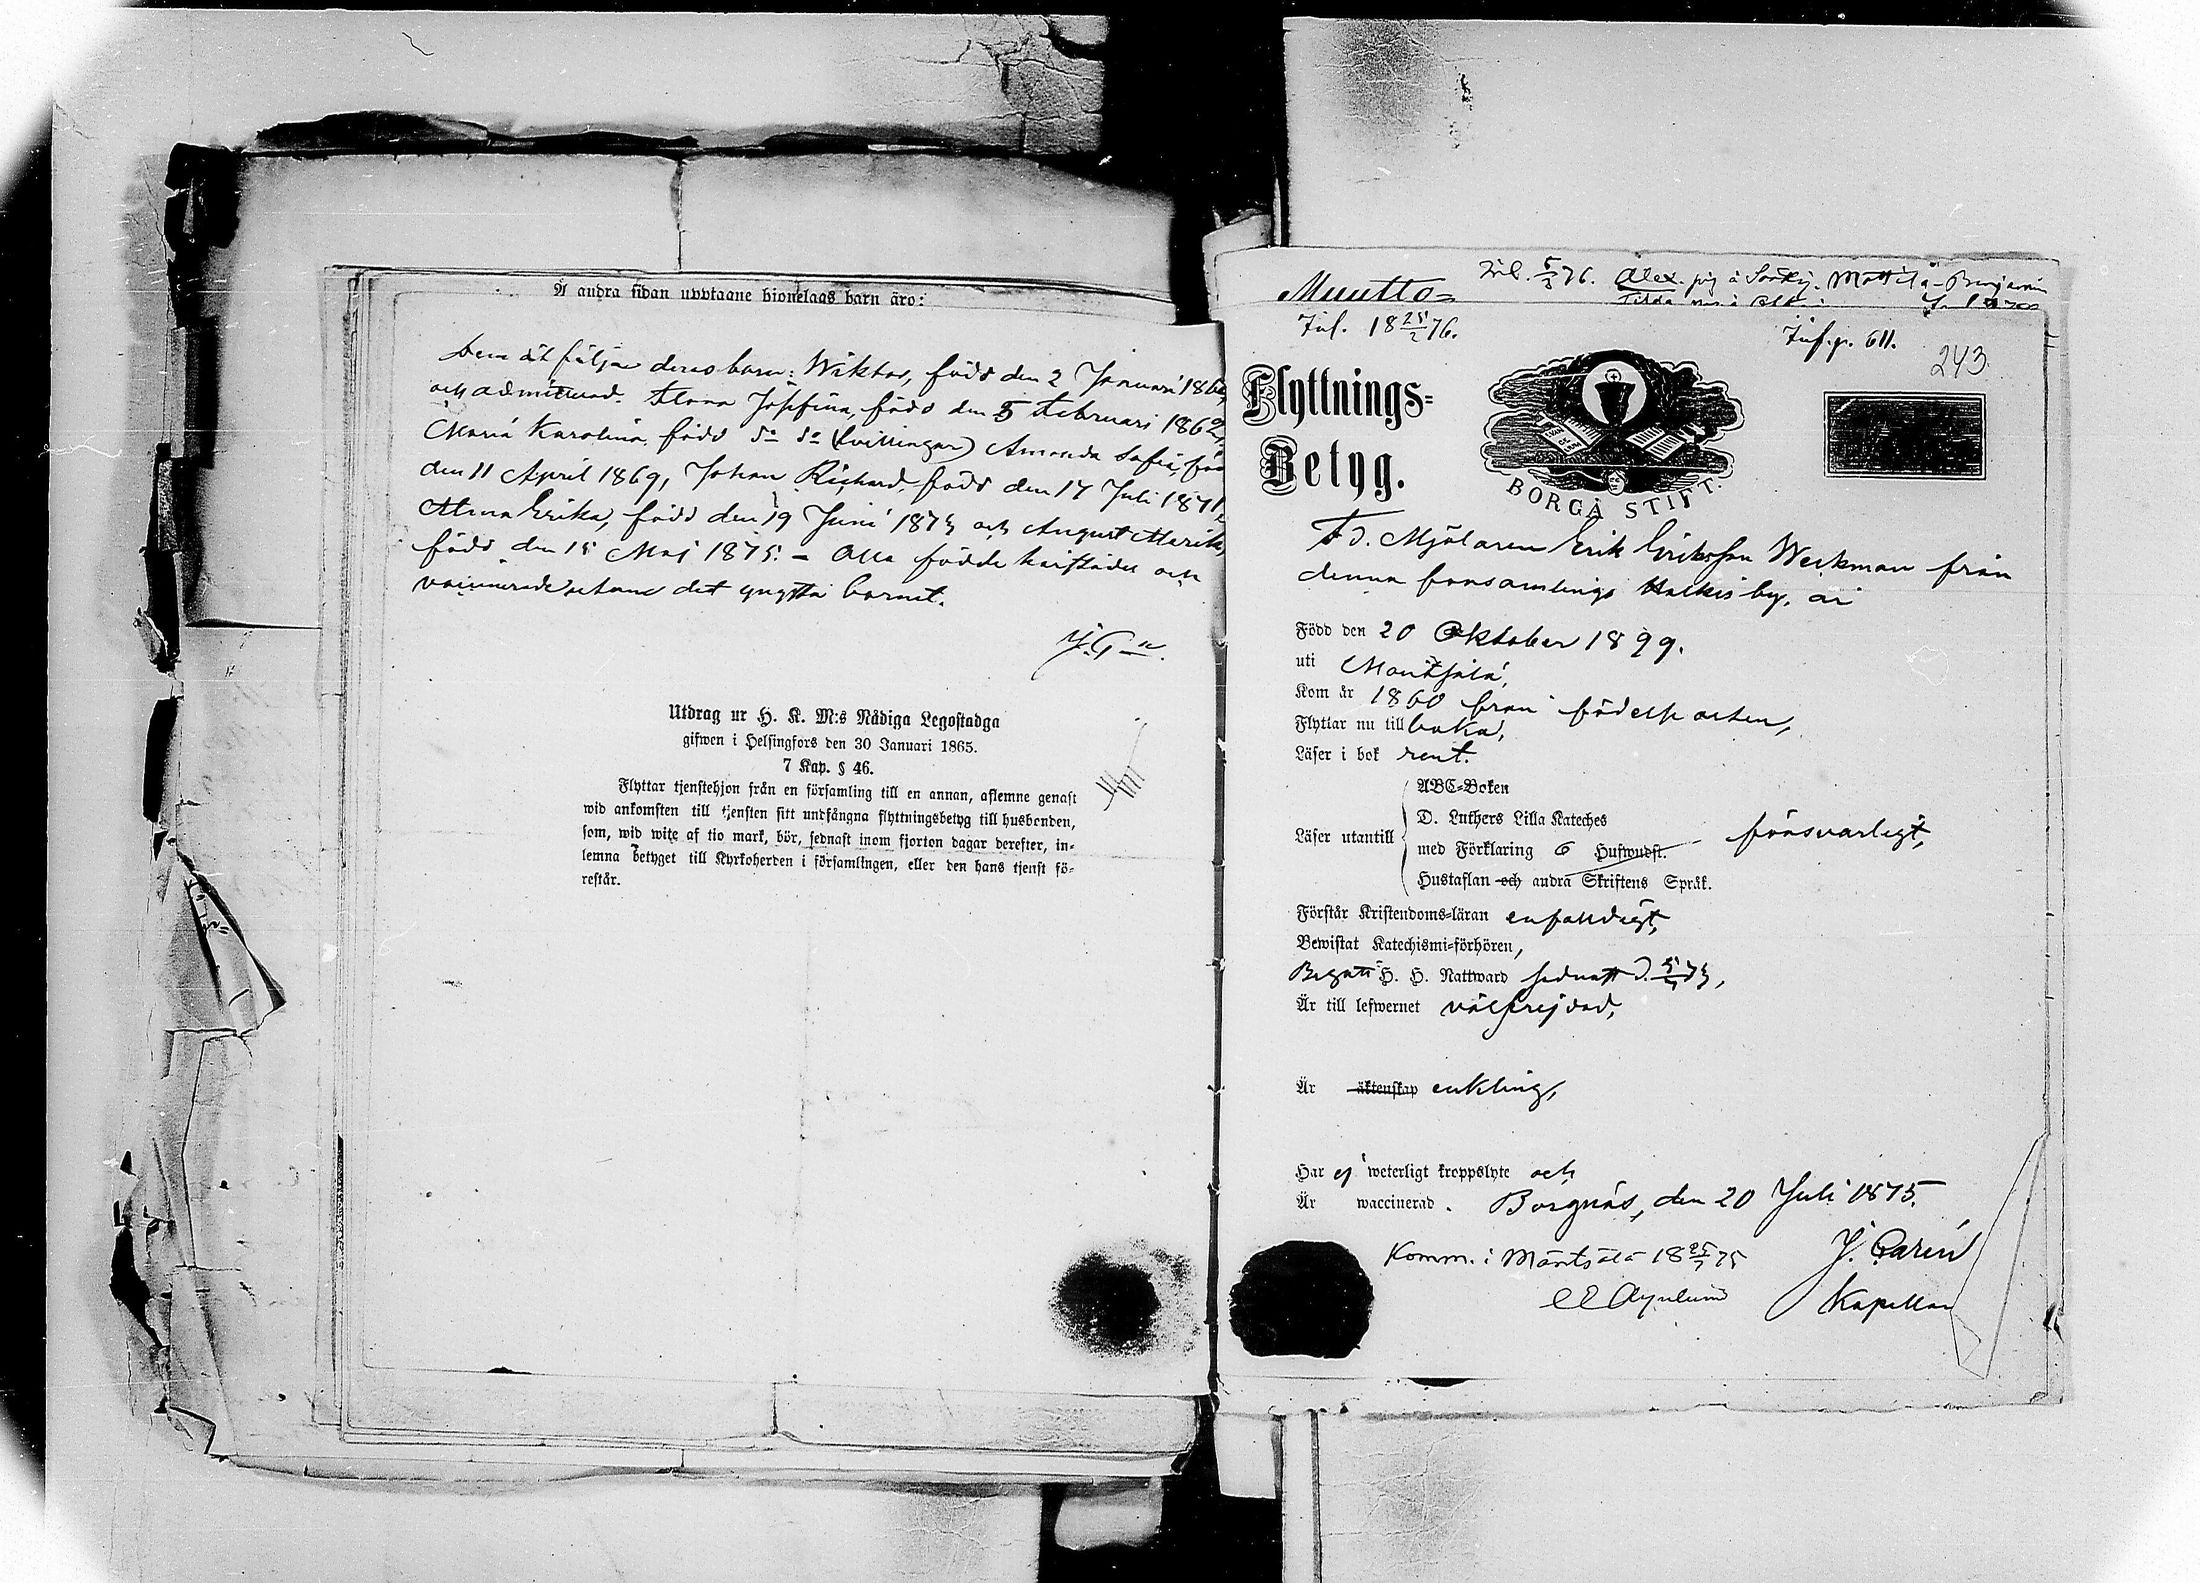 Å andra sidan upptagne hjonelags barn äro:
dem åtfölja deras barn: Wiktor, född den 2 Januari 1860,
och admitterad. Flora Josefina, född den 5 Februari 1862,
Maria Karolina, född do do (tvillingar) Amanda Sofia, född
den 11 April 1869, Johan Richard, född den 17 Juli 1871,
Alma Erika, född den 19 Juni 1873 och August Alarik,
född den 15 Maj 1875. – Alla födde härstädes och
vaccinerade utom det yngsta barnet.
Utdrag ur H. K. M:s Nådiga Legostadga
gifwen i Helsingfors den 30 Januari 1865.
7 Kap. § 46.
Flyttar tjenstehjon från en församling till en annan, aflemne genast
wid ankomsten till tjensten sitt undfångna flyttningsbetyg till husbonden,
som, wid wite af tio mark, bör, sednast inom fjorton dagar derefter, in-
lemna betyget till Kyrkoherden i församlingen, eller den hans tjenst fö-
restår.
Muutto-
Inf. 18 25/2 76.
Inf. p. 611.
243.
Flyttnings-
Betyg.
BORGÅ STIFT.
F. d. Mjölaren Erik Eriksson Weckman från
denna församlings Halkis by, är
Född den 20 Oktober 1899.
uti Mäntsälä,
Kom år 1860 från födelseorten,
Flyttar nu till baka,
Läser i bok rent.
ABC-Boken
D. Luthers Lilla Kateches
Läser utantill försvarligt,
med Förklaring 6 Hufwudst.
Hustaflan och andra Skriftens Språk.
Förstår Kristendoms-läran enfaldigt,
Bewistat Katechismi-förhören,
Begått H. H. Nattward sednast d.
Är till lefwernet välfrejdad,
Är äktenskap enkling,
Har ej weterligt kroppslyte och
Är waccinerad. Borgnäs, den 20 Juli 1875.
Komm. i Mäntsälä 18 25/7 75
J. Carén
Kapellan